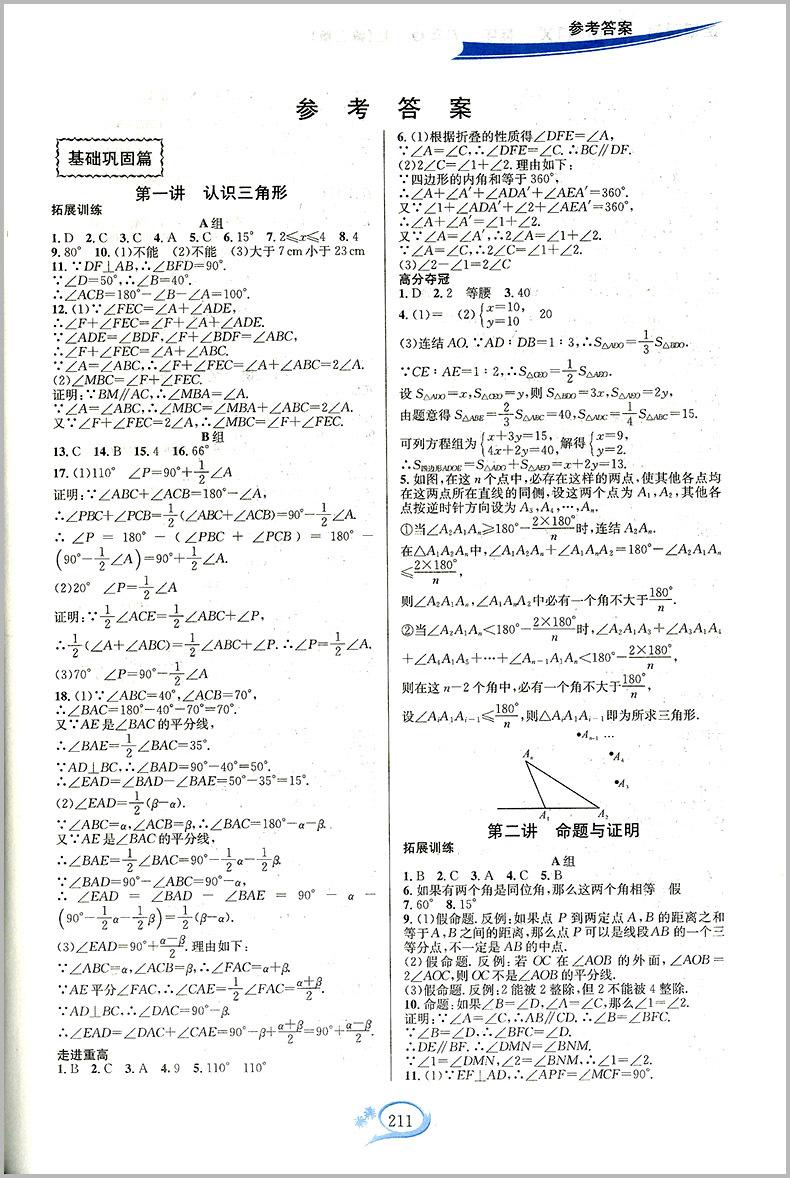 参考答案
参 考 答 案
基础巩固篇
第一讲 认识三角形
拓展训练
A组
1. D 2. C 3. C 4. A 5. C 6. 15° 7. 2≤x≤4 8. 4
9. 80° 10. (1)不能 (2)不能 (3)大于7cm小于23cm
11. ∵DF⊥AB,∴∠BFD=90°.
∵∠D=50°,∴∠B=40°.
∴∠ACB=180°-∠B-∠A=100°.
12. (1)∵∠FEC=∠A+∠ADE,
∴∠F+∠FEC=∠F+∠A+∠ADE.
∵∠ADE=∠BDF,∠F+∠BDF=∠ABC,
∴∠F+∠FEC=∠A+∠ABC.
∵∠A=∠ABC,∴∠F+∠FEC=∠A+∠ABC=2∠A.
(2)∠MBC=∠F+∠FEC.
证明:∵BM∥AC,∴∠MBA=∠A.
∵∠A=∠ABC,∴∠MBC=∠MBA+∠ABC=2∠A.
又∵∠F+∠FEC=2∠A,∴∠MBC=∠F+∠FEC.
B组
13. C 14. B 15. 4 16. 66°
17. (1)110° ∠P=90°+1/2∠A
证明:∵∠ABC+∠ACB=180°-∠A,
∴∠PBC+∠PCB=1/2(∠ABC+∠ACB)=90°-1/2∠A.
∴∠P=180°-(∠PBC+∠PCB)=180°-
(90°-1/2∠A)=90°+1/2∠A.
(2)20° ∠P=1/2∠A
证明:∵1/2∠ACE=1/2∠ABC+∠P,
∴1/2(∠A+∠ABC)=1/2∠ABC+∠P.∴∠P=1/2∠A.
(3)70° ∠P=90°-1/2∠A
18. (1)∵∠ABC=40°,∠ACB=70°,
∴∠BAC=180°-40°-70°=70°.
又∵AE是∠BAC的平分线,
∴∠BAE=1/2∠BAC=35°.
∵AD⊥BC,∴∠BAD=90°-40°=50°.
∴∠EAD=∠BAD-∠BAE=50°-35°=15°.
(2)∠EAD=1/2(β-α).
∵∠ABC=α,∠ACB=β,∴∠BAC=180°-α-β.
又∵AE是∠BAC的平分线,
∴∠BAE=1/2∠BAC=90°-1/2α-1/2β.
∵∠BAD=90°-∠ABC=90°-α,
∴∠EAD=∠BAD-∠BAE=90°-α-
(90°-1/2α-1/2β)=1/2(β-α).
(3)∠EAD=90°+(α-β)/2.理由如下:
∵∠ABC=α,∠ACB=β,∴∠FAC=α+β.
∵AE平分∠FAC,∴∠CAE=1/2∠FAC=(α+β)/2.
∵AD⊥BC,∴∠DAC=90°-β.
∴∠EAD=∠DAC+∠CAE=90°-β+(α+β)/2=90°+(α-β)/2.
走进重高
1. B 2. C 3. A 4. 9 5. 110° 110°
6. (1)根据折叠的性质得∠DFE=∠A,
∵∠A=∠C,∴∠DFE=∠C.∴BC∥DF.
(2)2∠C=∠1+∠2.理由如下:
∵四边形的内角和等于360°,
∴∠A+∠A′+∠ADA′+∠AEA′=360°.
又∵∠1+∠ADA′+∠2+∠AEA′=360°,
∴∠A+∠A′=∠1+∠2.
又∵∠A=∠A′,∴2∠A=∠1+∠2.
∵∠A=∠C,∴2∠C=∠1+∠2.
(3)∠2-∠1=2∠C
高分夺冠
1. D 2. 2 等腰 3. 40
4. (1)= (2){x=10, y=10 20
(3)连结AO.∵AD∶DB=1∶3,∴S△ADO=1/3S△BDO.
∵CE∶AE=1∶2,∴S△CEO=1/2S△AEO.
设S△ADO=x,S△CEO=y,则S△BDO=3x,S△AEO=2y,
由题意得S△ABE=2/3S△ABC=40,S△ADC=1/4S△ABC=15.
可列方程组为{x+3y=15, 4x+2y=40,解得{x=9, y=2.
∴S四边形ADOE=S△ADO+S△AEO=x+2y=13.
5. 如图,在这n个点中,必存在这样的两点,使其他各点均
在这两点所在直线的同侧,设这两个点为A₁,A₂,其他各
点按逆时针方向设为A₃,A₄,…,Aₙ.
①当∠A₂A₁Aₙ≥180°-2×180°/n时,连结A₂Aₙ.
在△A₁A₂Aₙ中,∠A₁A₂Aₙ+∠A₁AₙA₂=180°-∠A₂A₁Aₙ
≤2×180°/n,
则∠A₂A₁Aₙ,∠A₁AₙA₂中必有一个角不大于180°/n.
②当∠A₂A₁Aₙ<180°-2×180°/n时,∠A₂A₁A₃+∠A₃A₁A₄
+∠A₄A₁A₅+…+∠Aₙ₋₁A₁Aₙ<180°-2×180°/n,
则在这n-2个角中,必有一个角不大于180°/n.
设∠AᵢA₁Aᵢ₋₁≤180°/n,则△AᵢA₁Aᵢ₋₁即为所求三角形.
Aₙ₋₁ …
Aₙ
A₄
A₃
A₁ A₂
第二讲 命题与证明
拓展训练
A组
1. B 2. C 3. A 4. C 5. B
6. 如果有两个角是同位角,那么这两个角相等 假
7. 60° 8. 15°
9. (1)假命题.反例:如果点P到两定点A,B的距离之和
等于A,B之间的距离,那么点P可以是线段AB的一个三
等分点,不一定是AB的中点.
(2)假命题.反例:若OC在∠AOB的外面,∠AOB=
2∠AOC,则OC不是∠AOB的平分线.
(3)假命题.反例:2能被2整除,但2不能被4整除.
10. 命题:如果∠B=∠D,∠A=∠C,那么∠1=∠2.
证明:∵∠A=∠C,∴AB∥CD.∴∠B=∠BFC.
∵∠B=∠D,∴∠BFC=∠D.
∴DE∥BF.∴∠DMN=∠BNM.
∵∠1=∠DMN,∠2=∠BNM,∴∠1=∠2.
11. (1)∵EF⊥AD,∴∠APF=∠MCF=90°.
211